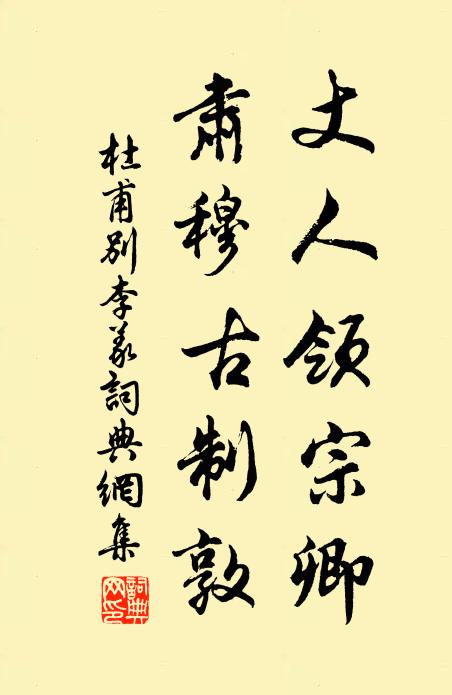 丈人領宗卿
肅穆古制敦
杜甫別李義詞典網集